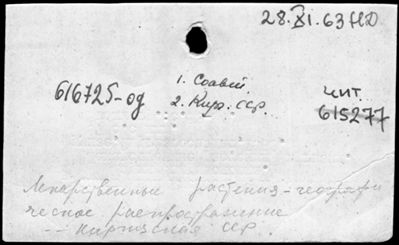 28.XI.63 НД
1. Соавт.
616725-од
2. Кирг. сср.
чит.
615277
Лекарственные растения - географи
ческое распространение
-- Киргизская сср.